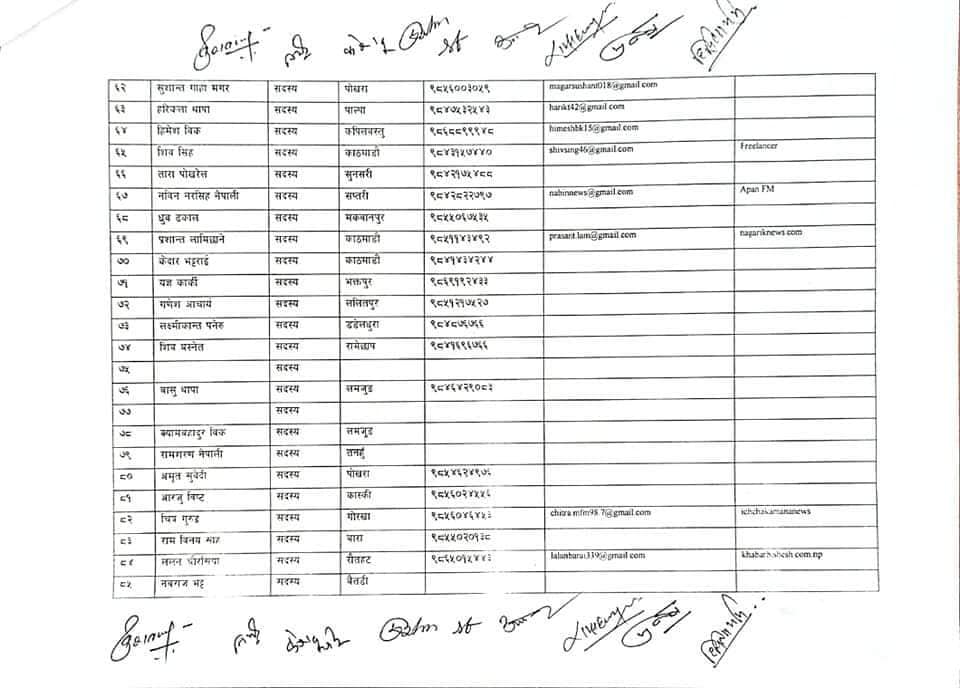 ६२ सुशान्त गाहा मगर सदस्य पोखरा ९८५६००३०५९ magarsushant018@gmail.com
६३ हरिकला थापा सदस्य पाल्पा ९८४७५३२५४३ harikt42@gmail.com
६४ हिमेश विक सदस्य कपिलवस्तु ९८६८८९९९४८ himeshbk15@gmail.com
६५ शिव सिंह सदस्य काठमाडौ ९८४३१५७४४० shivsing46@gmail.com Freelancer
६६ तारा पोखरेल सदस्य सुनसरी ९८४२१७५४८८
६७ नविन नरसिह नेपाली सदस्य सप्तरी ९८४२८२२७९७ nabinnews@gmail.com Apan FM
६८ ध्रुव ढकाल सदस्य मकवानपुर ९८५५०६७५३५
६९ प्रशान्त लामिछाने सदस्य काठमाडौ ९८५११४३४९२ prasant.lam@gmail.com nagariknews.com
७० केदार भट्टराई सदस्य काठमाडौ ९८४१४३४२४४
७१ यज्ञ कार्की सदस्य भक्तपुर ९८६९१९२४३३
७२ गणेश आचार्य सदस्य ललितपुर ९८५१२१७५२७
७३ लक्ष्मीकान्त पनेरु सदस्य डडेलधुरा ९८४८७६७६६
७४ शिव प्रस्नेत सदस्य रामेछाप ९८४१६९६७६६
७५ सदस्य
७६ बासु थापा सदस्य लमजुङ ९८४६४२९०८३
७७ सदस्य
७८ श्यामबहादुर विक सदस्य लमजुङ
७९ रामशरण नेपाली सदस्य तनहुँ
८० अमृत सुवेदी सदस्य पोखरा ९८५४६२४९७६
८१ आरजु विष्ट सदस्य कास्की ९८५६०२४५५६
८२ चित्र गुरुङ सदस्य गोरखा ९८५६०४६४५३ chitra.mfm98.7@gmail.com ichchakamananews
८३ राम विनय साह सदस्य बारा ९८५५०२०१३८
८४ ललन चौरसिया सदस्य रौतहट ९८६५०१५४४३ lalanbarai339@gmail.com
८५ नवराज भट्ट सदस्य बैतडी